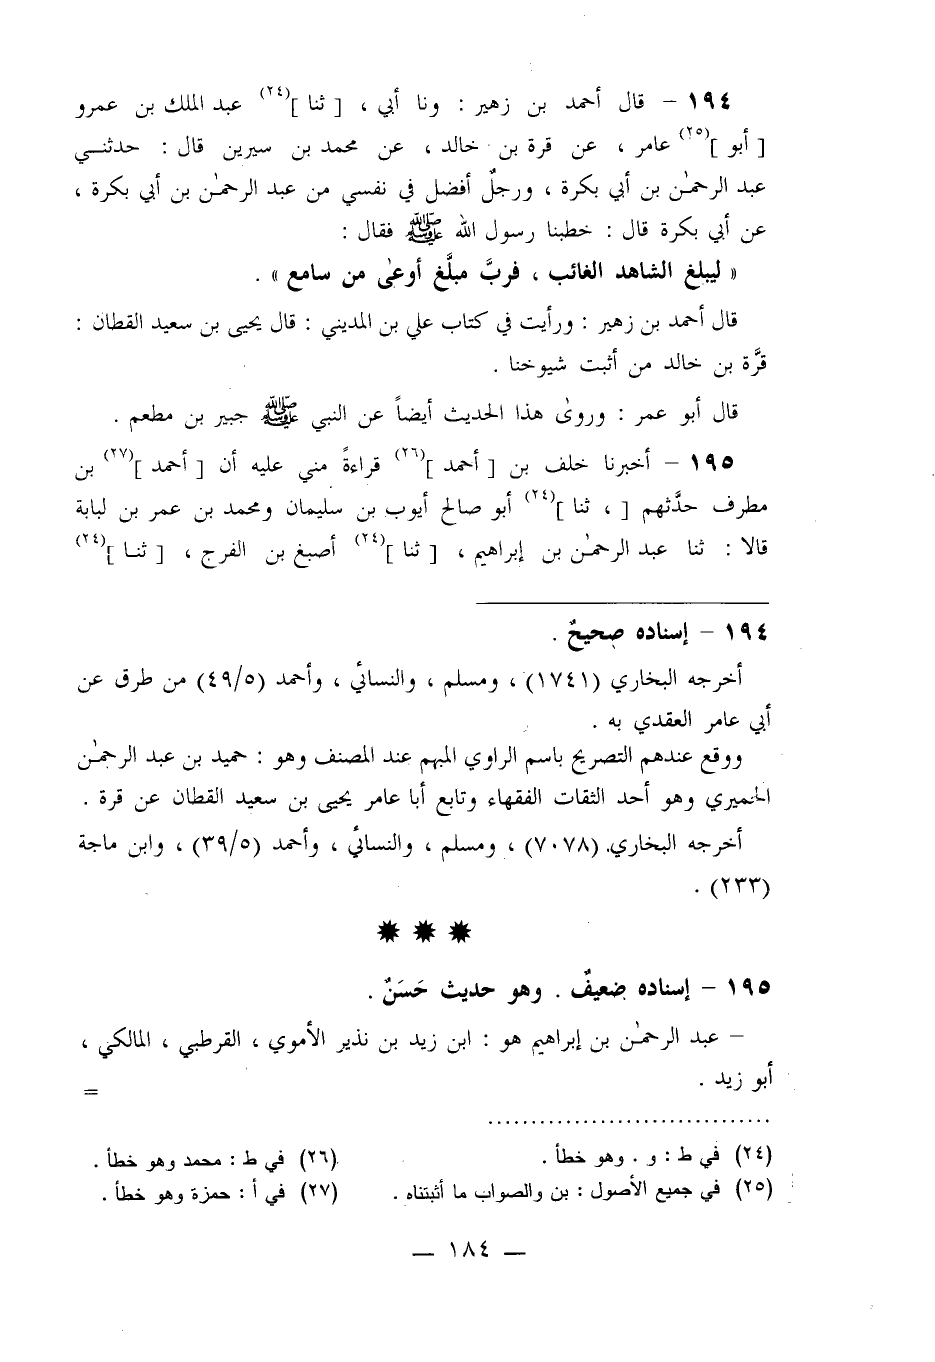 ١٩٤ – قال أحمد بن زهير : ونا أبي ، [ ثنا ](٢٤) عبد الملك بن عمرو
[ أبو ](٢٥) عامر ، عن قرة بن خالد ، عن محمد بن سيرين قال : حدثنـي
عبد الرحمٰن بن أبي بكرة ، ورجلٌ أفضل في نفسي من عبد الرحمٰن بن أبي بكرة ،
عن أبي بكرة قال : خطبنا رسول الله ﷺ فقال :
« ليبلغ الشاهد الغائب ، فربَّ مبلَّغ أوعىٰ من سامع » .
قال أحمد بن زهير : ورأيت في كتاب علي بن المديني : قال يحيى بن سعيد القطان :
قرَّة بن خالد من أثبت شيوخنا .
قال أبو عمر : وروىٰ هذا الحديث أيضاً عن النبي ﷺ جبير بن مطعم .
١٩٥ – أخبرنا خلف بن [ أحمد ](٢٦) قراءةً مني عليه أن [ أحمد ](٢٧) بن
مطرف حدَّثهم [ ، ثنا ](٢٤) أبو صالح أيوب بن سليمان ومحمد بن عمر بن لبابة
قالا : ثنا عبد الرحمٰن بن إبراهيم ، [ ثنا ](٢٤) أصبغ بن الفرج ، [ ثنـا ](٢٤)
١٩٤ – إسناده صحيحٌ .
أخرجه البخاري (١٧٤١) ، ومسلم ، والنسائي ، وأحمد (٤٩/٥) من طرق عن
أبي عامر العقدي به .
ووقع عندهم التصريح باسم الراوي المبهم عند المصنف وهو : حميد بن عبد الرحمٰن
الحميري وهو أحد الثقات الفقهاء وتابع أبا عامر يحيى بن سعيد القطان عن قرة .
أخرجه البخاري (٧٠٧٨) ، ومسلم ، والنسائي ، وأحمد (٣٩/٥) ، وابن ماجة
(٢٣٣) .
✹ ✹ ✹
١٩٥ – إسناده ضعيفٌ . وهو حديث حَسَنٌ .
– عبد الرحمٰن بن إبراهيم هو : ابن زيد بن نذير الأموي ، القرطبي ، المالكي ،
أبو زيد . =
(٢٤) في ط : و . وهو خطأ .
(٢٥) في جميع الأصول : بن والصواب ما أثبتناه .
(٢٦) في ط : محمد وهو خطأ .
(٢٧) في أ : حمزة وهو خطأ .
— ١٨٤ —